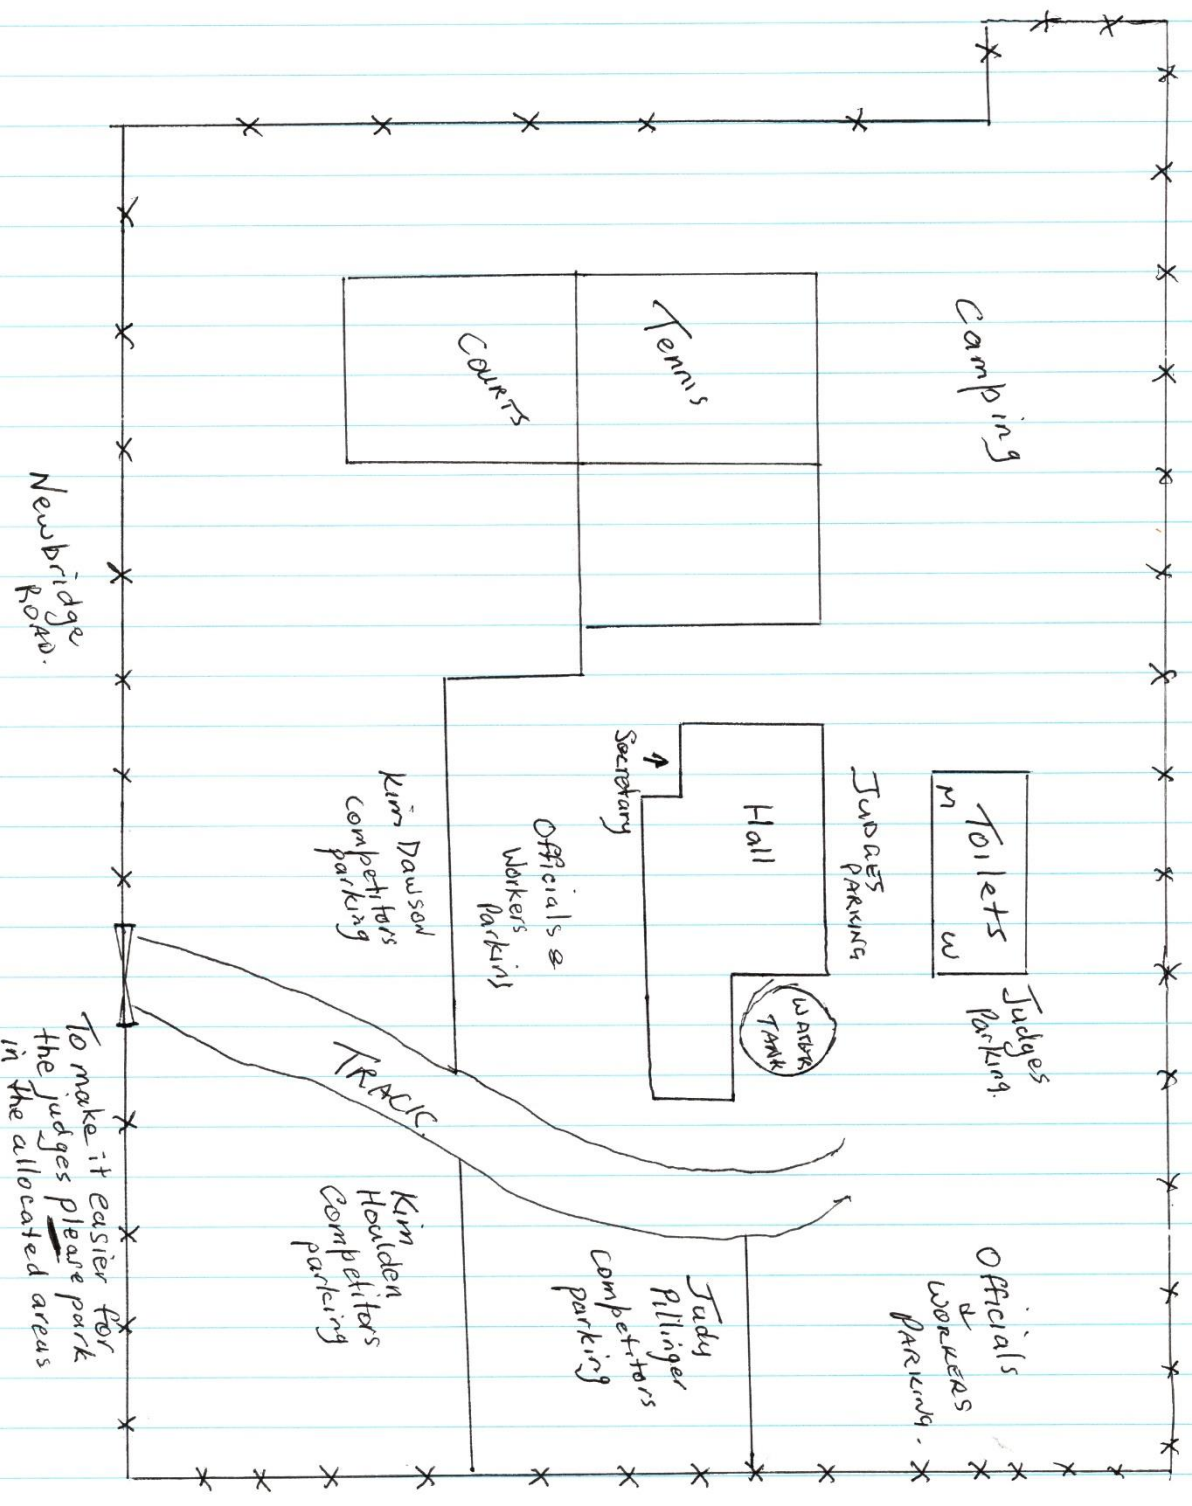 Camping
Tennis
COURTS
Toilets
M
W
Judges
Parking.
JUDGES
PARKING
Hall
WATER
TANK
Secretary
Officials &
Workers
Parking
Kim Dawson
Competitors
parking
Officials
&
WORKERS
PARKING.
Judy
Pillinger
Competitors
parking
Kim
Houlden
Competitors
parking
TRACK.
Newbridge
ROAD.
To make it easier for
the judges please park
in the allocated areas